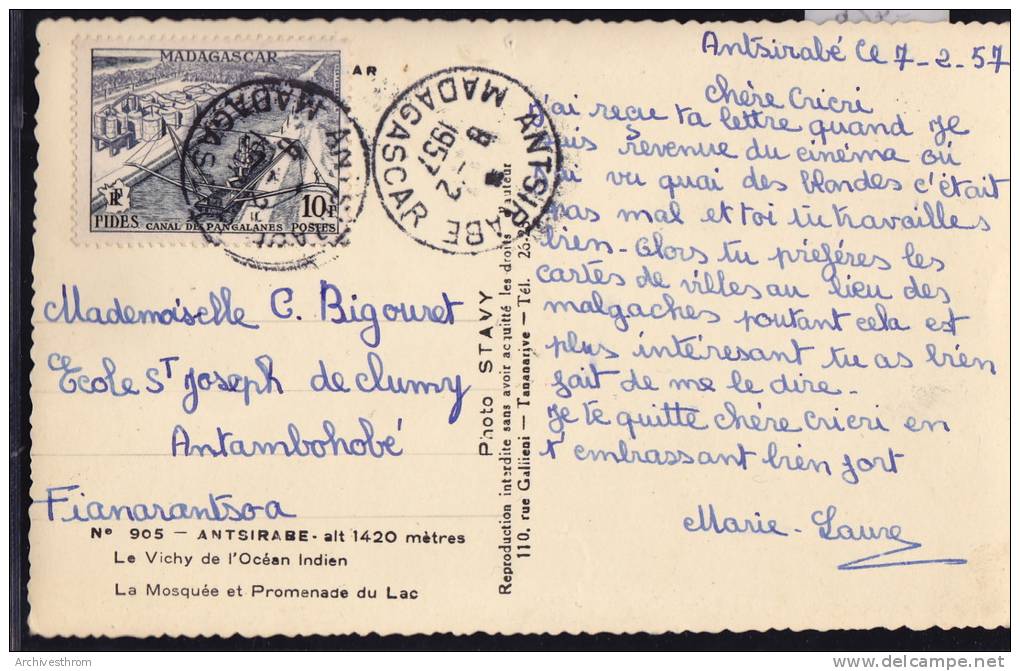 Antsirabé le 7-2-57
chère Cricri
j'ai reçu ta lettre quand je
suis revenue du cinéma où
j'ai vu quai des blondes c'était
pas mal et toi tu travailles
bien - Alors tu préfères les
cartes de villes au lieu des
malgaches poutant cela est
plus intéresant tu as bien
fait de me le dire -
Je te quitte chère Cricri en
t'embrassant bien fort
Marie-Laure
MADAGASCAR
RF
10F
FIDES CANAL DES PANGALANES POSTES
AR
ANTSIRABE
8 -2
1957
MADAGASCAR
Mademoiselle C. Bigouret
Ecole St Joseph de cluny
Antambohobé
Fianarantsoa
N° 905 — ANTSIRABE - alt 1420 mètres
Le Vichy de l'Océan Indien
La Mosquée et Promenade du Lac
Photo STAVY
Reproduction interdite sans avoir acquitté les droits auteur
110, rue Gallieni — Tananarive — Tél. 26-
Archivesthrom
delcampe.net